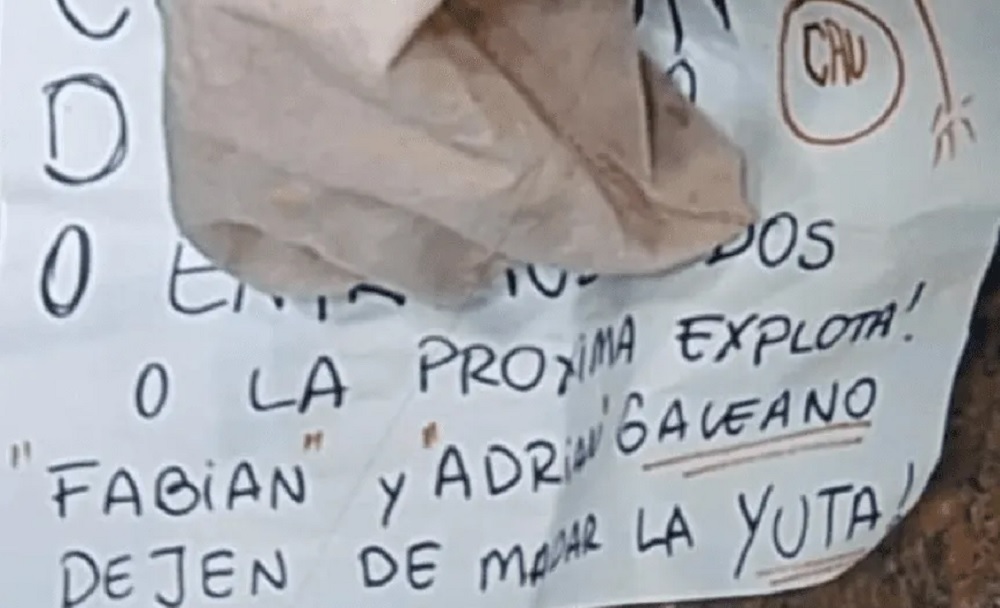 CAU
D
O
DOS
O LA PROXIMA EXPLOTA!
"FABIAN" y "ADRIAN" GALEANO
DEJEN DE MADAR LA YUTA!